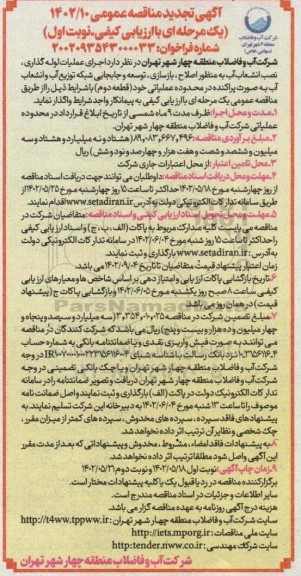 آگهی تجدید مناقصه عمومی ۱۴۰۲/۱۰
(یک مرحله ای با ارزیابی کیفی-نوبت اول)
شماره فراخوان: ۲۰۰۲۰۹۳۵۴۳۰۰۰۰۳۳
شرکت آب و فاضلاب
منطقه ۴ شهر تهران
(سهامی خاص)
شرکت آب و فاضلاب منطقه چهار شهر تهران در نظر دارد اجرای عملیات لوله گذاری،
نصب انشعاب آب به منظور اصلاح، بازسازی، توسعه و جابجایی شبکه توزیع آب و انشعاب
آب به صورت پراکنده در محدوده عملیاتی خود (قطعه دوم) با شرایط ذیل را از طریق
مناقصه عمومی یک مرحله ای با ارزیابی کیفی به پیمانکار واجد شرایط واگذار نماید.
۱-مدت و محل اجرا: ظرف مدت ۹ ماه شمسی از تاریخ ابلاغ قرارداد در محدوده
عملیاتی شرکت آب و فاضلاب منطقه چهار شهر تهران.
۲-مبلغ برآوردی مناقصه: ۸۹,۰۸۳,۶۶۷,۴۹۶ (هشتاد و نه میلیارد و هشتاد و سه
میلیون و ششصد و شصت و هفت هزار و چهارصد و نود و شش) ریال
۳-محل تامین اعتبار: از محل اعتبارات جاری شرکت
۴-مهلت و محل دریافت اسناد مناقصه: داوطلبان می توانند جهت دریافت اسناد مناقصه
از روز چهارشنبه مورخ ۱۴۰۲/۰۵/۱۸ حداکثر تا ساعت ۱۵ روز چهارشنبه مورخ ۱۴۰۲/۰۵/۲۵ از
طریق سامانه تدارکات الکترونیکی دولت به آدرس www.setadiran.ir اقدام نمایند.
۵-مهلت و محل تحویل اسناد ارزیابی کیفی و اسناد مناقصه: متقاضیان شرکت در
مناقصه می بایست کلیه مدارک مربوط به پاکات (الف، ب، ج) و اسناد ارزیابی کیفی
را حداکثر تا ساعت ۱۵ روز شنبه مورخ ۱۴۰۲/۰۶/۰۴ در سامانه تدارکات الکترونیکی دولت
به آدرس www.setadiran.ir بارگذاری و ثبت نمایند.
زمان اعتبار پیشنهاد قیمت متقاضیان تا تاریخ ۱۴۰۲/۰۹/۰۴ می باشد.
۶-تاریخ بازگشایی پاکات ارزیابی و امتیازدهی بر اساس شاخص ها و معیارهای ارزیابی
کیفی ساعت ۸ صبح روز یکشنبه مورخ ۱۴۰۲/۰۶/۰۵ و بازگشایی پاکات ج (پیشنهاد
قیمت) در همان روز می باشد.
۷-مبلغ تضمین شرکت در مناقصه ۳,۳۵۴,۰۱۰,۰۲۵ (سه میلیارد و سیصد و پنجاه و
چهار میلیون و ده هزار و بیست و پنج) ریال می باشد که شرکت کنندگان در مناقصه
می توانند به صورت فیش واریزی نقدی و یا ضمانتنامه بانکی به شماره حساب
نزد بانک رسالت با شناسه شبای در وجه
شرکت آب و فاضلاب منطقه چهار شهر تهران و یا چک بانکی تضمینی در وجه
شرکت آب و فاضلاب منطقه چهار شهر تهران دریافت و تصویر ضمانتنامه را در سامانه
تدارکات الکترونیک دولت در پاکت (الف) بارگذاری و ثبت نمایند و اصل ضمانت نامه
موصوف را تا ساعت ۱۳ شنبه مورخ ۱۴۰۲/۰۶/۰۴ به دبیرخانه این شرکت تسلیم نمایند. به
پیشنهادهای فاقد سپرده، سپرده های مخدوش، سپرده های کمتر از میزان مقرر،
چک شخصی و نظایر آن ترتیب اثر داده نخواهد شد.
۸-به پیشنهادات فاقد امضاء، مشروط، مخدوش و پیشنهاداتی که بعد از مدت مقرر
این آگهی واصل شود مطلقا ترتیب اثر داده نخواهد شد.
۹-زمان چاپ آگهی: نوبت اول ۱۴۰۲/۰۵/۱۸ و نوبت دوم ۱۴۰۲/۰۵/۲۱
برگزار کننده مناقصه در رد یا قبول یک یا کلیه پیشنهادات مختار است.
سایر اطلاعات و جزئیات در اسناد مناقصه مندرج است.
هزینه درج آگهی روزنامه به عهده مناقصه گزار می باشد.
سایت شرکت آب و فاضلاب منطقه چهار شهر تهران: http://t4ww.tppww.ir
سایت ملی مناقصات: http://iets.mporg.ir
سایت شرکت مهندسی: http:tender.nww.co.ir
شرکت آب و فاضلاب منطقه چهار شهر تهران